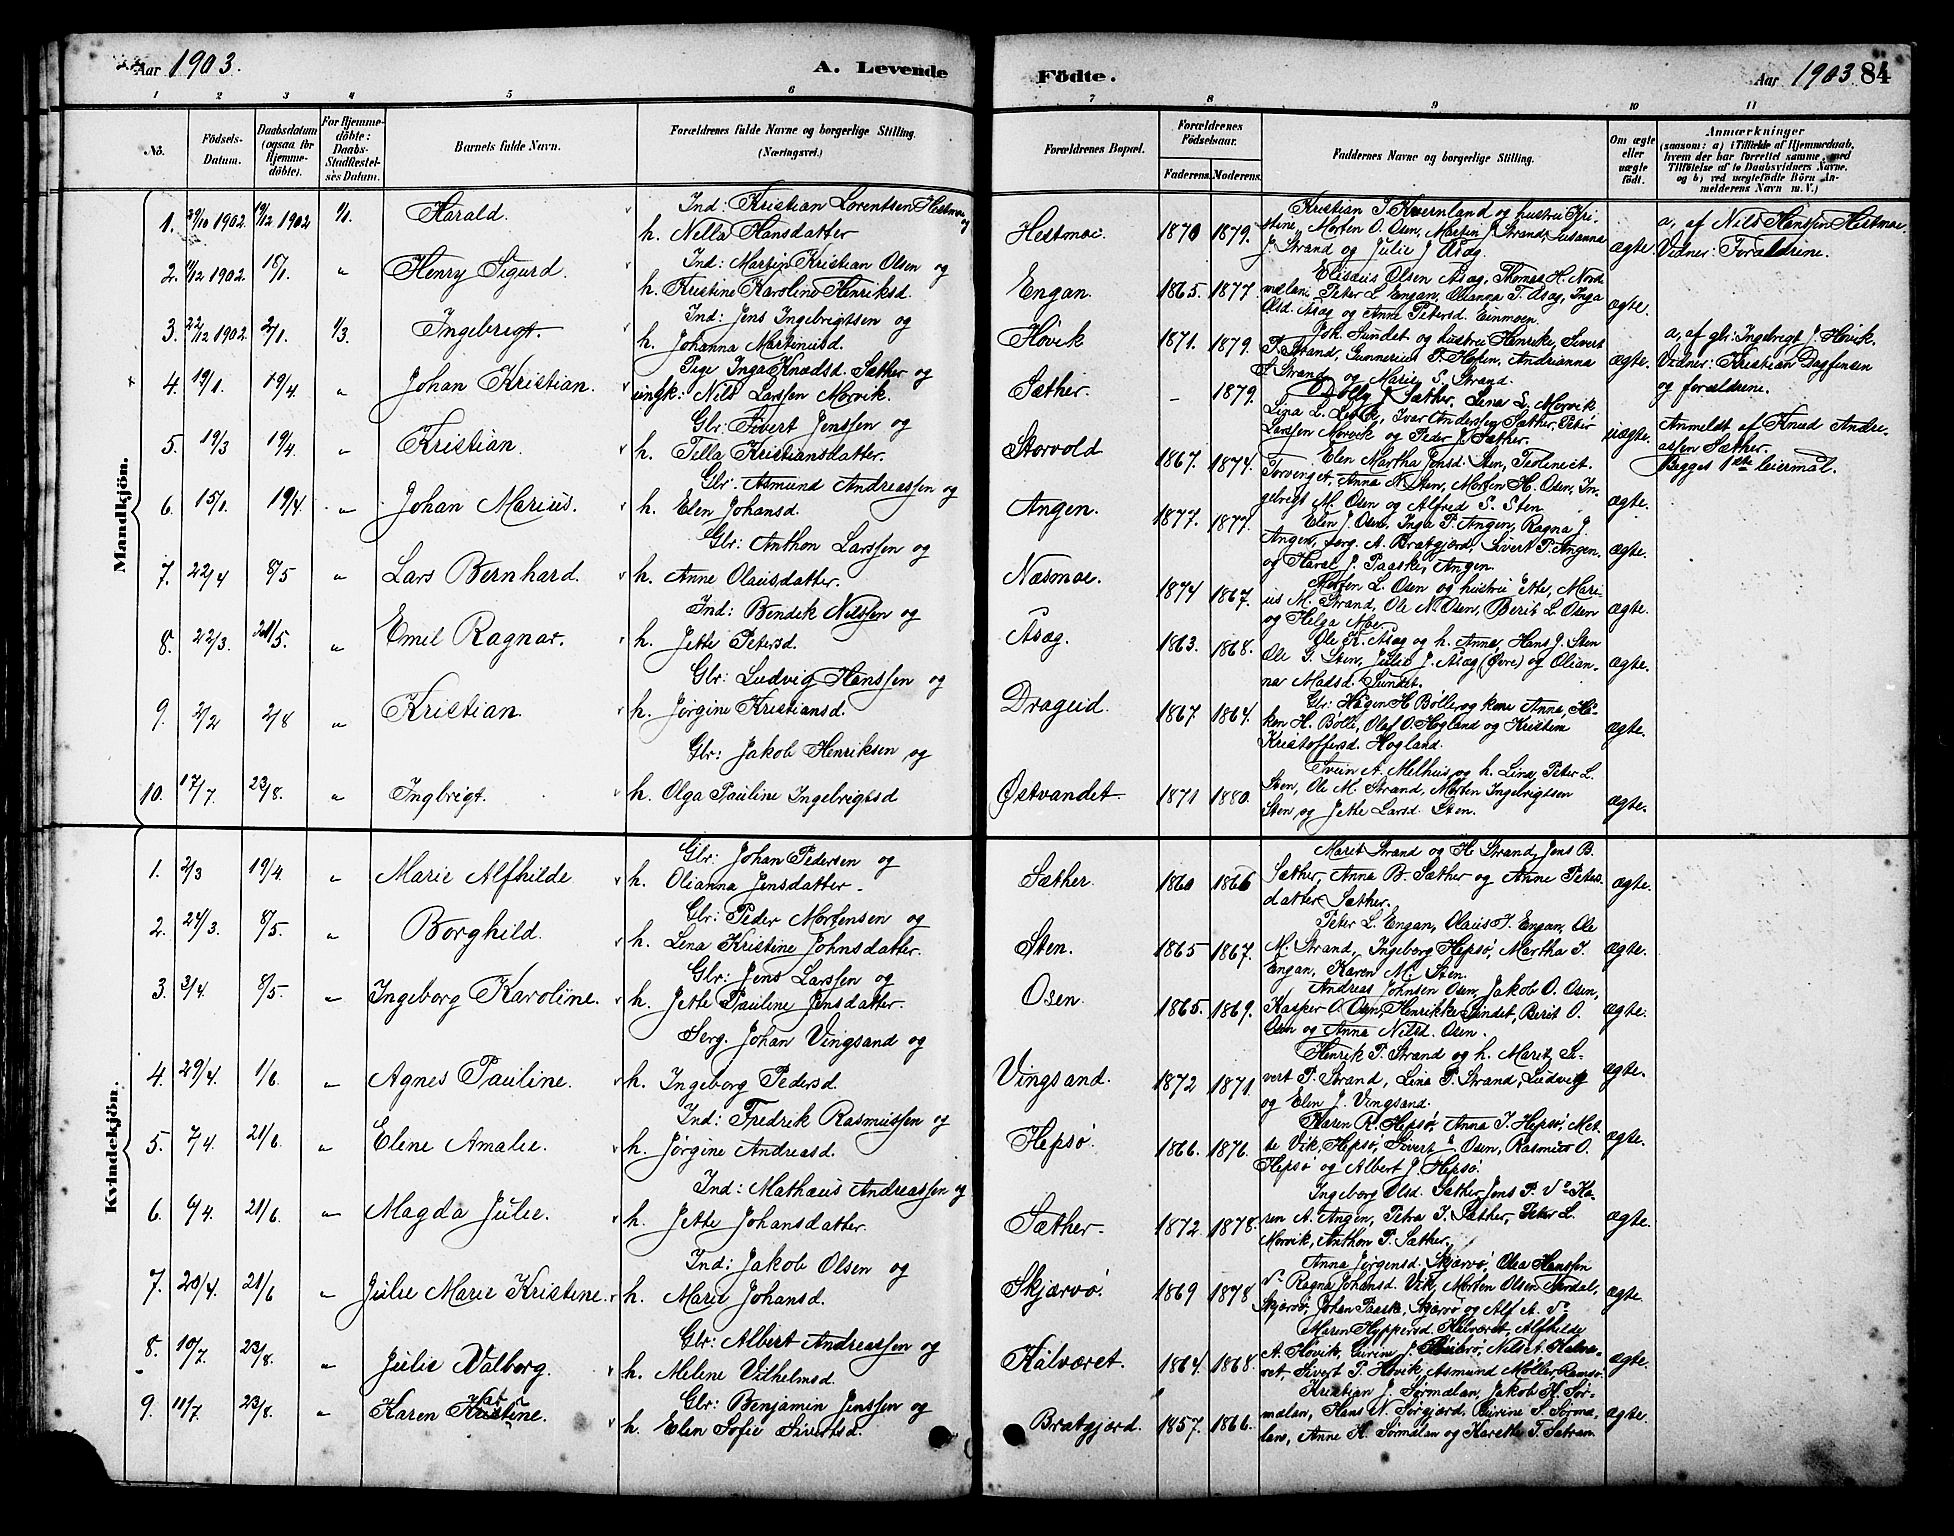 Aar 1903.
A. Levende
Födte.
Aar 1903
84
1 2 3 4 5 6 7 8 9 10 11
No.
Födsels-Datum.
Daabsdatum (ogsaa for Hjemme-döbte).
For Hjemme-döbte: Daabs-Stadfæstel-ses Datum.
Barnets fulde Navn.
Forældrenes fulde Navne og borgerlige Stilling. (Næringsvei.)
Forældrenes Bopæl.
Forældrenes Födselsaar.
Faderens. Moderens.
Faddernes Navne og borgerlige Stilling.
Om ægte eller uægte födt.
Anmærkninger
(saasom: a) i Tilfælde af Hjemmedaab,
hvem der har forrettet samme, med
Tilföielse af to Daabsvidners Navne,
og b) ved uægtefödte Börn An-
melderens Navn m. V.)
Mandkjön.
1. 29/10 1902. 19/12 1902 1/1. Harald.
Ind: Kristian Lorentsen Hestmoe og
h. Nella Hansdatter
Hestmoe. 1870 1879.
Kristian J. Kvernland og hustru Kri-
stine, Morten O. Osen, Martin J. Strand, Susanna
J. Strand og Julie J. Asag.
ægte.
a, af Nils Hanssen Hestmoe.
Vidner: Forældrene.
2. 12 1902. 18/1. " Henry Sigurd.
Ind: Martin Kristian Olsen og
h. Kristine Karoline Henriksd.
Engan. 1865. 1877.
Elisæus Olsen Asag, Thomas H. Nord
mælan, Peter L. Engan, Olianna T. Asag, Inga
Olsd. Asag og Anne Petersd. Einmoen.
ægte.
3. 22/12 1902. 2/1. 1/3. Ingebrigt.
Ind: Jens Ingebrigtsen og
h. Johanna Martinusd.
Hövik 1871. 1879.
Joh. Sundet og hustru Henrikke, Sivert
P. Strand, Gunnerius P. Hofsten, Andrianna
S. Strand og Marie S. Strand.
ægte.
a, af glr: Ingebrigt J. Hövik.
Vidner: Kristian Dagfinsen
og forældrene.
4. 19/1. 19/4. " Johan Kristian.
Pige Inga Knudsd. Sæther og
ungk: Nils Larssen Morvik.
Sæther. - 1879.
Dolly J. Sæther, Lina L. Morvik
Lina L. Ivar Anderssen Sæther, Peter
Larssen Morvik og Peder J. Sæther.
uægte.
Anmeldt af Knud Andre-
assen Sæther.
Begges 1ste leiermål.
5. 19/3 19/4. " Kristian.
Glr: Sivert Jenssen og
h. Tella Kristiansdatter.
Storvold 1867. 1874.
Elen Martha Jonsd. Sten,
Torvenget, Anna N. Sten, Morten H. Osen, In-
gebrigt M. Osen og Alfred S. Sten.
ægte.
6. 15/1. 19/4. " Johan Marius.
Glr: Asmund Andreassen og
h. Elen Johansd.
Angen. 1877. 1877.
Elen J. Osen, Inga P. Angen, Ragna J.
Angen, serg. A. Bratgjerd, Sivert P. Angen.
og Haral J. Paaske, Angen.
ægte.
7. 22/4 8/5 " Lars Bernhard.
Glr: Anthon Larssen og
h. Anne Olausdatter.
Næsmoe. 1874 1867.
Morten L. Osen og hustru Ette, Mari-
us M. Strand, Ole N. Osen, Berit L. Osen
og Helga Moe.
ægte.
8. 22/3. 21/5. " Emil Ragnar.
Ind: Bendek Nilssen og
h. Jette Petersd.
Asag. 1863. 1868.
Ole K. Asag og h. Anna, Hans J. Sten
Ole G. Sten, Julie J. Asag (Øvre) og Olian-
na Madsd. Sundet.
ægte.
9. 2/2 2/8 " Kristian.
Glr: Ludvig Hanssen og
h. Jørgine Kristiansd.
Drageid. 1867. 1864.
Glr: Hagen H. Bölle og kone Anna, Hå-
ken H. Bölle, Olaf O. Hogland og Kristine
Kristoffersd. Hogland.
ægte.
10. 17/7 23/8. " Inglrigt.
Glr: Jakob Henriksen og
h. Olga Pauline Ingebrigtsd
Østvandet 1871 1880.
Svein A. Melhus og h. Lina, Peter L.
Sten, Ole M. Strand, Morten Ingebrigtsen
Sten og Jette Larsd. Sten.
ægte.
Kvindekjön.
1. 2/3 19/4. " Marie Alfhilde
Glr: Johan Pedersen og
h. Olianna Jensdatter.
Sæther. 1860 1866
Marit Strand og H. Strand, Jens B.
Sæther, Anna B. Sæther og Anne Peters
datter Sæther.
ægte.
2. 24/3. 8/5. " Borghild.
Glr: Peder Mortensen og
h. Lena Kristine Johnsdatter.
Sten. 1865 1867.
Peter L. Engan, Olaus J. Engan, Ole
M. Strand, Ingeborg Hepsø, Martha I.
Engan, Karen M. Sten.
ægte.
3. 3/4. 8/5. " Ingeborg Karoline.
Glr: Jens Larssen og
h. Jette Pauline Jensdatter.
Osen. 1865. 1869.
Andreas Johnsen Osen, Jakob O. Osen,
Kasper O. Osen, Henrikke Sundet, Berit O.
Osen og Anna Nilsd. Osen.
ægte.
4. 29/4. 1/6. " Agnes Pauline.
Serg. Johan Vingsand og
h. Ingeborg Pedersd.
Vingsand. 1872 1871.
Henrik P. Strand og h. Marit, Si-
vert P. Strand, Lina P. Strand, Ludvig
og Elen J. Vingsand.
ægte.
5. 7/4. 21/6. " Elene Amalie.
Ind: Fredrik Rasmussen og
h. Jörgine Andreasd.
Hepsø. 1866. 1876.
Karen R. Hepsø, Anna J. Hepsø, Met-
te Vik, Hepsø, Sivert Osen, Rasmus O.
Hepsø og Albert J. Hepsø.
ægte.
6. 9/4. 21/6. " Magda Julie.
Ind: Mathæus Andreassen og
h. Jette Johansdatter.
Sæther. 1872 1878.
Ingeborg Olsd. Sæther, Jens P. Ka-
ren A. Angen, Petra J. Sæther, Peter L.
Morvik, Anthon P. Sæther.
ægte.
7. 20/4. 21/6 " Julie Marie Kristine.
Ind: Jakob Olsen og
h. Marie Johansd.
Skjærvö. 1869 1878
Anna Jørgensd. Skjærvö, Olea Hanssen
Ragna Johansd. Vik, Morten Olsen
Skjærvö, Johan Paaske, Skjærvö og Alf A.
ægte.
8. 10/7. 23/8. " Julie Valborg.
Glr: Albert Andreassen og
h. Melene Vilhelmsd.
Kålværet. 1864. 1868.
Maren Hyppersd. Kalværet, Alfhilde
A. Hovik, Gurine J. Nils A. Kalvæ-
ret, Sivert P. Hövik, Asmund Møller, Ramsø.
ægte.
9. 11/7. 23/8. " Karen Kristine.
Glr: Benjamin Jenssen og
h. Elen Sofie Sivertsd.
Bratgjærd. 1857. 1866.
Kristian J. Sørmælan, Jakob H. Sør-
mælan, Hans N. Sørgjærd, Gurine S. Sørmæ-
lan, Anne H. Sørmælan og Karethe T. Sætran
ægte.